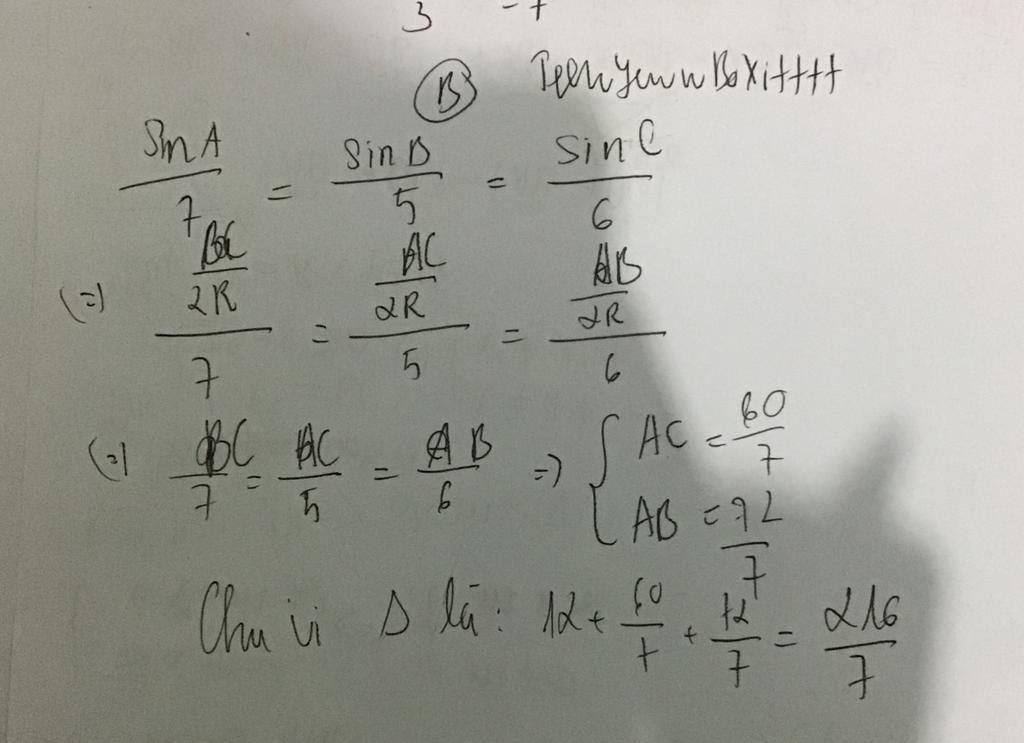 3 -7
B
sin A / 7 = sin B / 5 = sin C / 6
(=) BC/2R / 7 = AC/2R / 5 = AB/2R / 6
(=) BC/7 = AC/5 = AB/6 => { AC = 60/7
AB = 72/7
Chu vi Δ là: 12 + 60/7 + 72/7 = 216/7